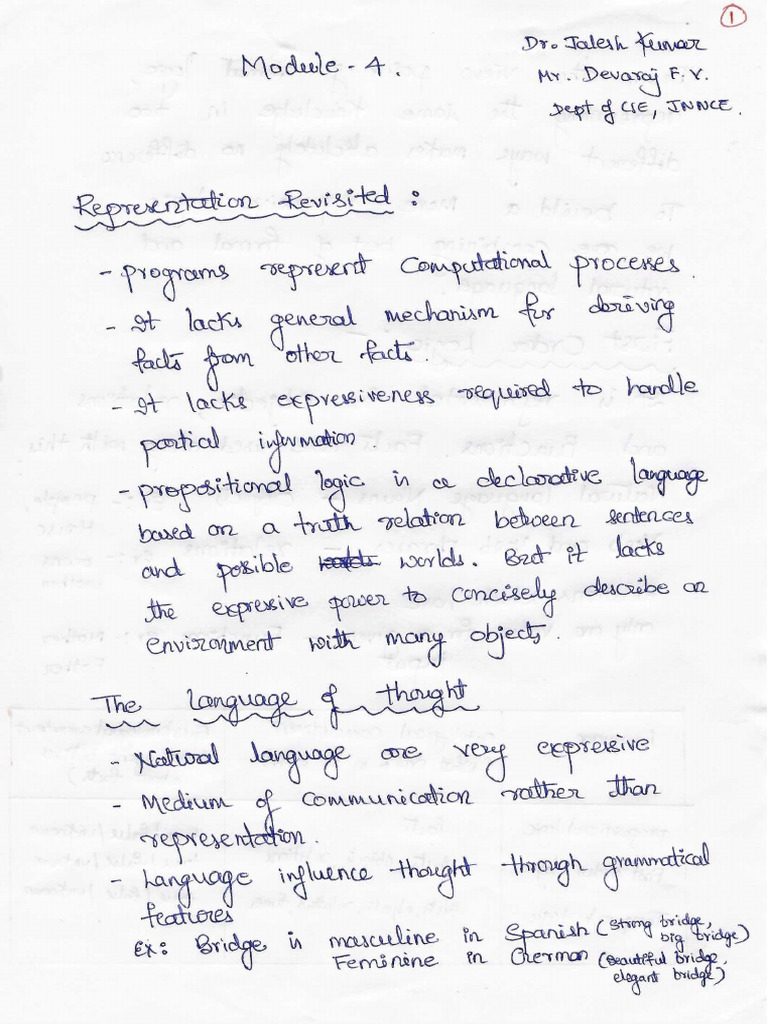 1
Dr. Jalesh Kumar
Module - 4.
Mr. Devaraj F. V.
Dept of CSE, JNNCE.
Representation Revisited :
- programs represent Computational processes.
- It lacks general mechanism for deriving
facts from other facts.
- It lacks expressiveness required to handle
partial information.
- propositional logic is a declarative language
based on a truth relation between sentences
and possible worlds. But it lacks
the expressive power to concisely describe an
environment with many objects.
The Language of thought
- Natural language are very expressive
- Medium of communication rather than
representation.
- Language influence thought through grammatical
features
Ex: Bridge is masculine in Spanish (strong bridge,
big bridge)
Feminine in German (beautiful bridge,
elegant bridge)